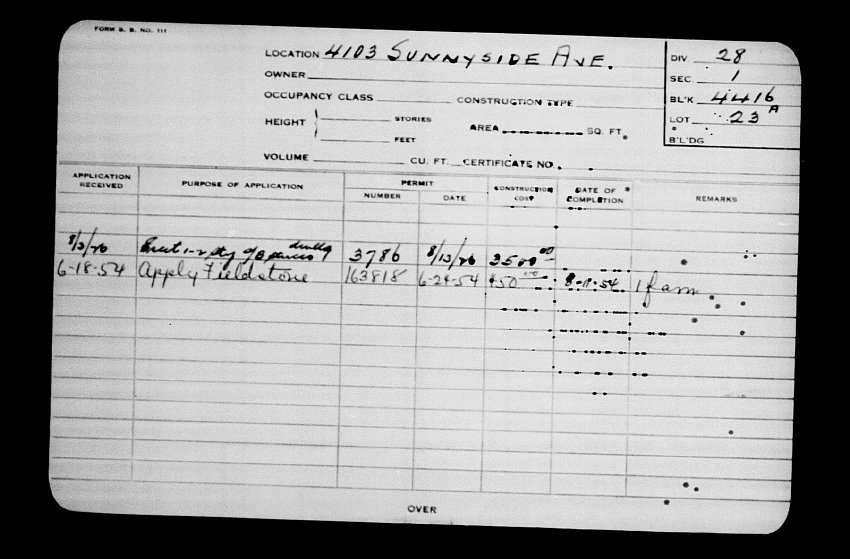 FORM B. B. NO. 111
LOCATION 4103 SUNNYSIDE AVE.
OWNER
OCCUPANCY CLASS CONSTRUCTION TYPE
HEIGHT STORIES
FEET
AREA SQ. FT.
VOLUME CU. FT. CERTIFICATE NO.
DIV 28
SEC. 1
BL'K 4416
LOT 23A
B'L'DG
APPLICATION RECEIVED PURPOSE OF APPLICATION PERMIT NUMBER DATE CONSTRUCTION COST DATE OF COMPLETION REMARKS
8/3/26 1-2 sty dwellg 3786 8/13/26 3500 00
6-18-54 Apply Fieldstone 163818 6-24-54 8-11-54 1 fam
OVER